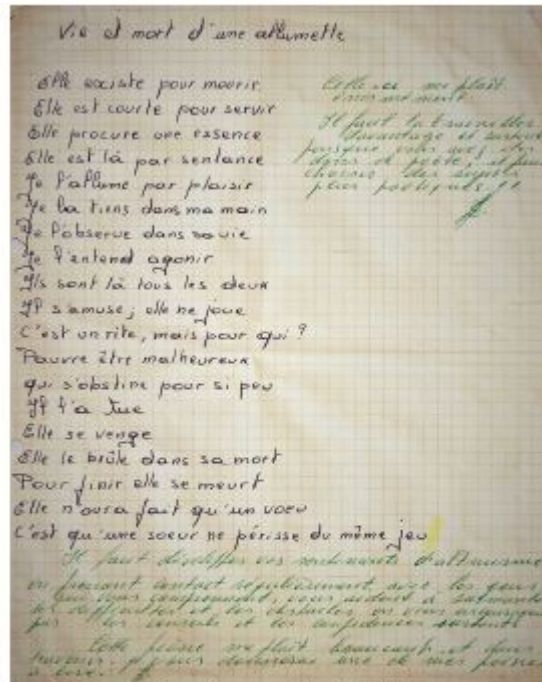 Vie et mort d'une allumette
Elle existe pour mourir
Elle est courte pour servir
Elle procure une essence
Elle est là par sentance
Je l'allume par plaisir
Je la tiens dans ma main
Je l'observe dans sa vie
Je l'entend agonir
Ils sont là tous les deux
Il s'amuse, elle ne joue
C'est un rite, mais pour qui ?
Pauvre être malheureux
qui s'obstine pour si peu
Il l'a tue
Elle se venge
Elle le brûle dans sa mort
Pour finir elle se meurt
Elle n'aura fait qu'un voeu
C'est qu'une soeur ne périsse du même jeu
me plaît
Il faut la travailler
davantage et surtout
puisque vous avez des
dons de poète, il faut
choisir des sujets
plus poétiques
Il faut développer vos sentiments d'altruisme
en prenant contact régulièrement avec les gens
qui vous comprennent, vous aident à surmonter
les difficultés et les obstacles
par les conseils et les confidences
Cette poésie me plaît beaucoup et